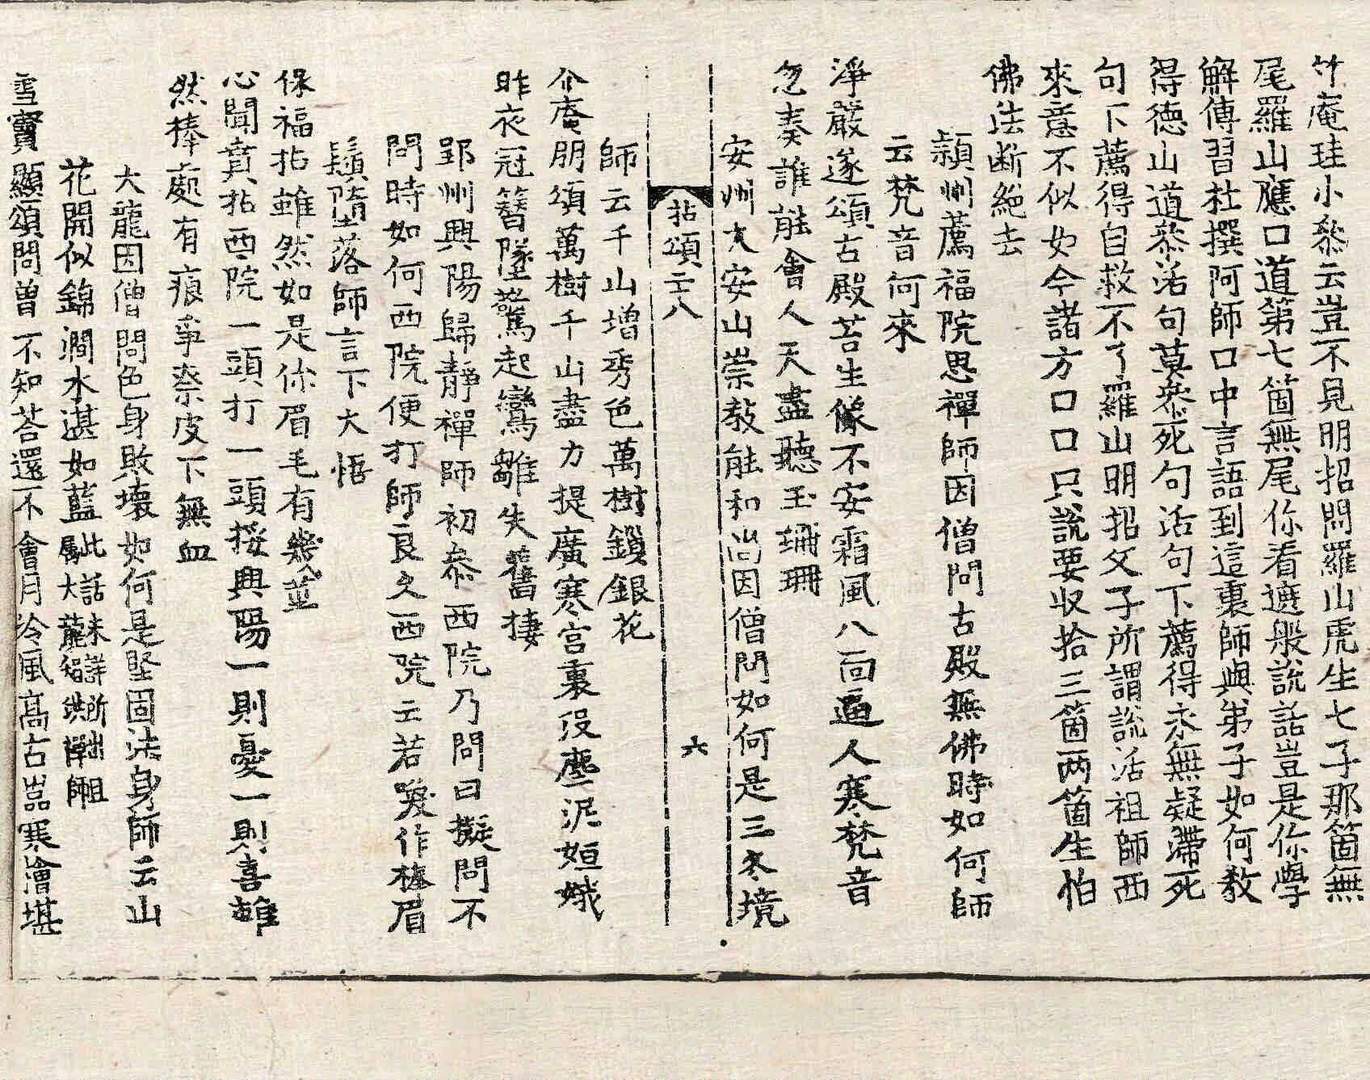 竹庵珪小叅云豈不見明招問羅山虎生七子那箇無
尾羅山應口道第七箇無尾你看遮般說話豈是你學
解傳習杜撰阿師口中言語到這裏師與弟子如何敎
得德山道叅活句莫叅死句活句下薦得永無疑滯死
句下薦得自救不了羅山明招父子所謂說活祖師西
來意不似如今諸方口口只說要収拾三箇两箇生怕
佛法断絕去
頴州薦福院思禪師因僧問古殿無佛時如何師
云梵音何來
淨嚴遂頌古殿苔生像不安霜風八面逼人寒梵音
忽奏誰能會人天盡聽玉珊珊
安州大安山崇敎能和尚因僧問如何是三冬境
拈頌二十八
六
師云千山增秀色萬樹鏁銀花
介庵朋頌萬樹千山盡力提廣寒宮裏沒塵泥姮娥
昨夜冠簪墜驚起鸞雛失舊棲
郢州興陽歸靜禪師初叅西院乃問曰擬問不
問時如何西院便打師良久西院云若喚作棒眉
鬚墮落師言下大悟
保福拈雖然如是你眉毛有幾莖
心聞賁拈西院一頭打一頭挼興陽一則憂一則喜雖
然棒處有痕爭奈皮下無血
大龍因僧問色身敗壞如何是堅固法身師云山
花開似錦澗水湛如藍此話未詳所出且属大龍智洪禪師
雪竇顯頌問曾不知荅還不會月冷風高古嵓寒檜堪